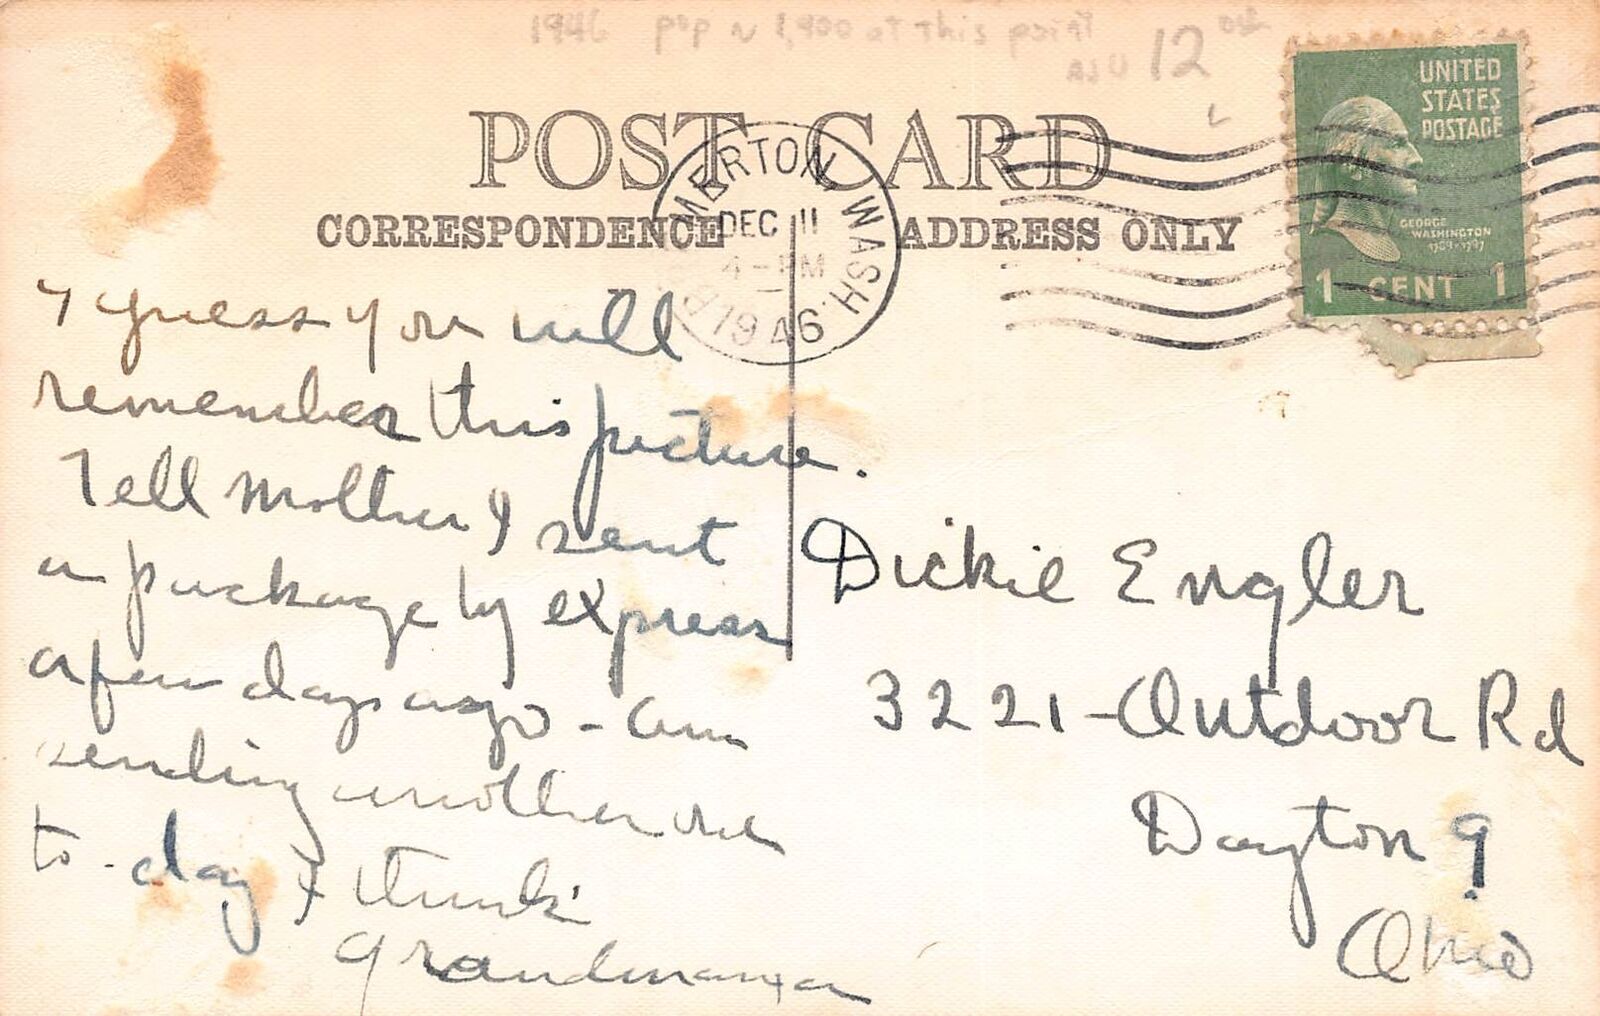 1946 pop ~ 1,400 at this point
12
UNITED
STATES
POSTAGE
GEORGE
WASHINGTON
1789-1797
1 CENT 1
POST CARD
CORRESPONDENCE ADDRESS ONLY
MERTON, WASH.
DEC 11
4-PM
1946
I guess you will
remember this picture.
Tell Mother I sent
a package by express
a few days ago - am
sending another one
to-day I think
Grandmama
Dickie Engler
3221-Outdoor Rd
Dayton 9
Ohio